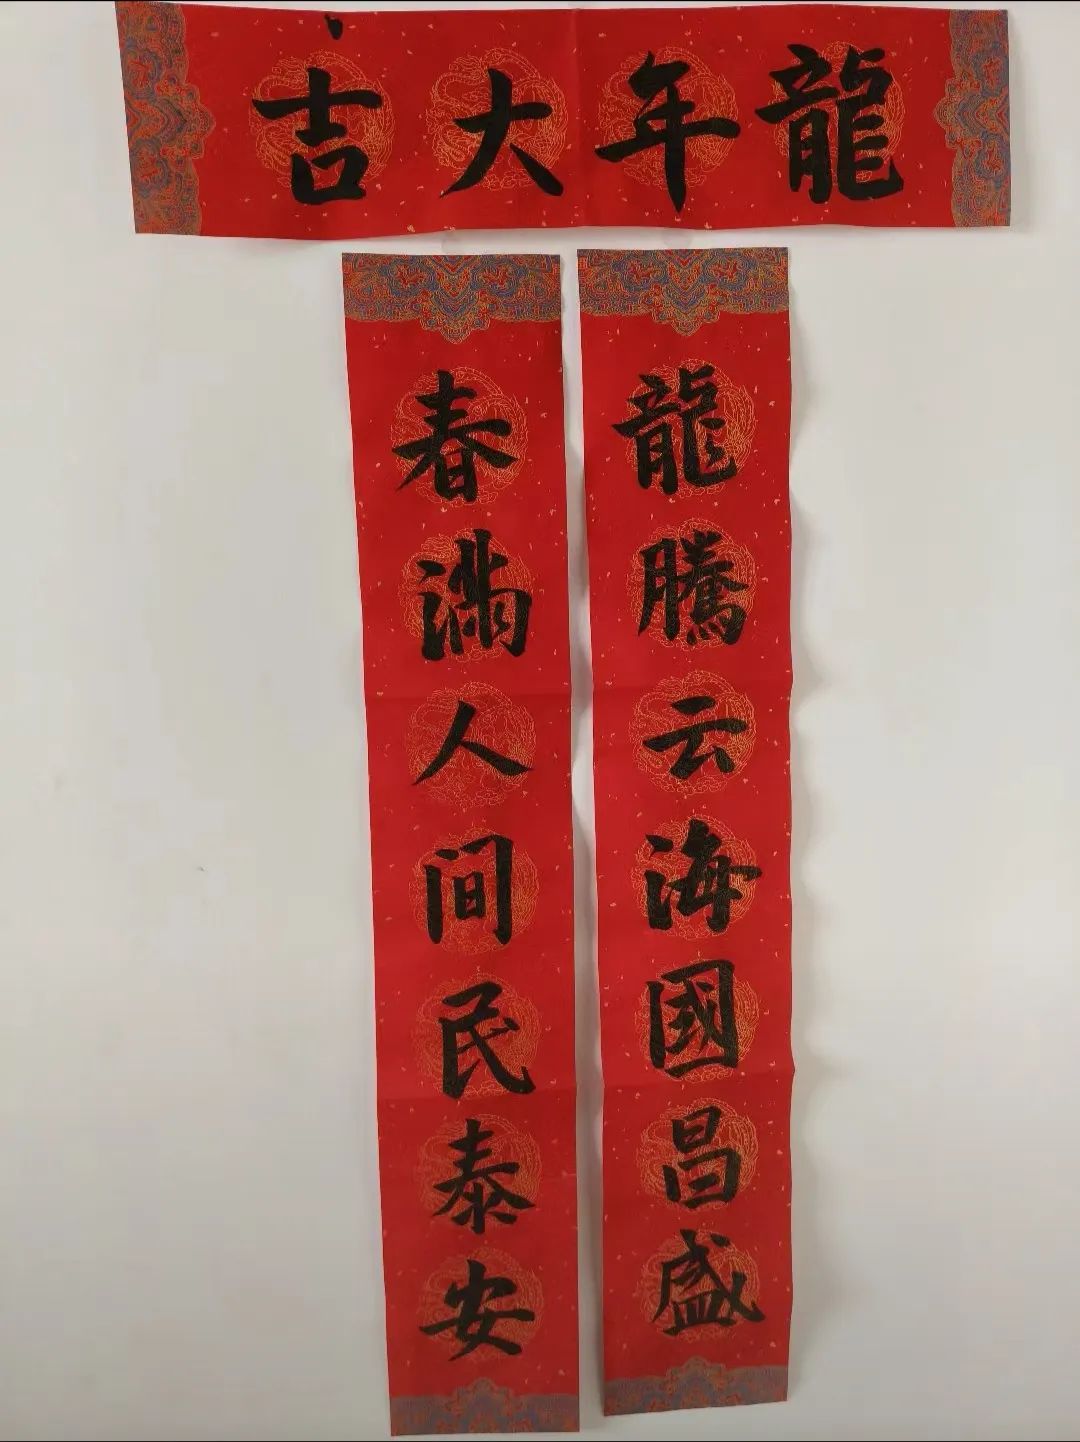 龍年大吉
龍騰云海國昌盛
春滿人间民泰安